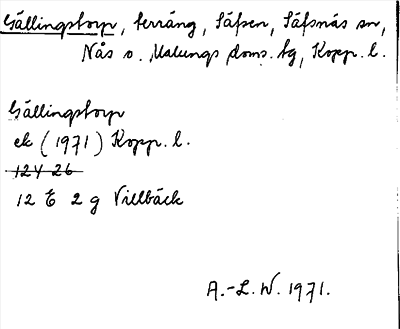 Gällingstorp, terräng, Säfsen, Säfsnäs sn,
Nås o. Malungs doms. tg, Kopp. l.
Gällingstorp
ek (1971) Kopp. l.
12Y 26
12 E 2 g Villbäck
A.-L. W. 1971.